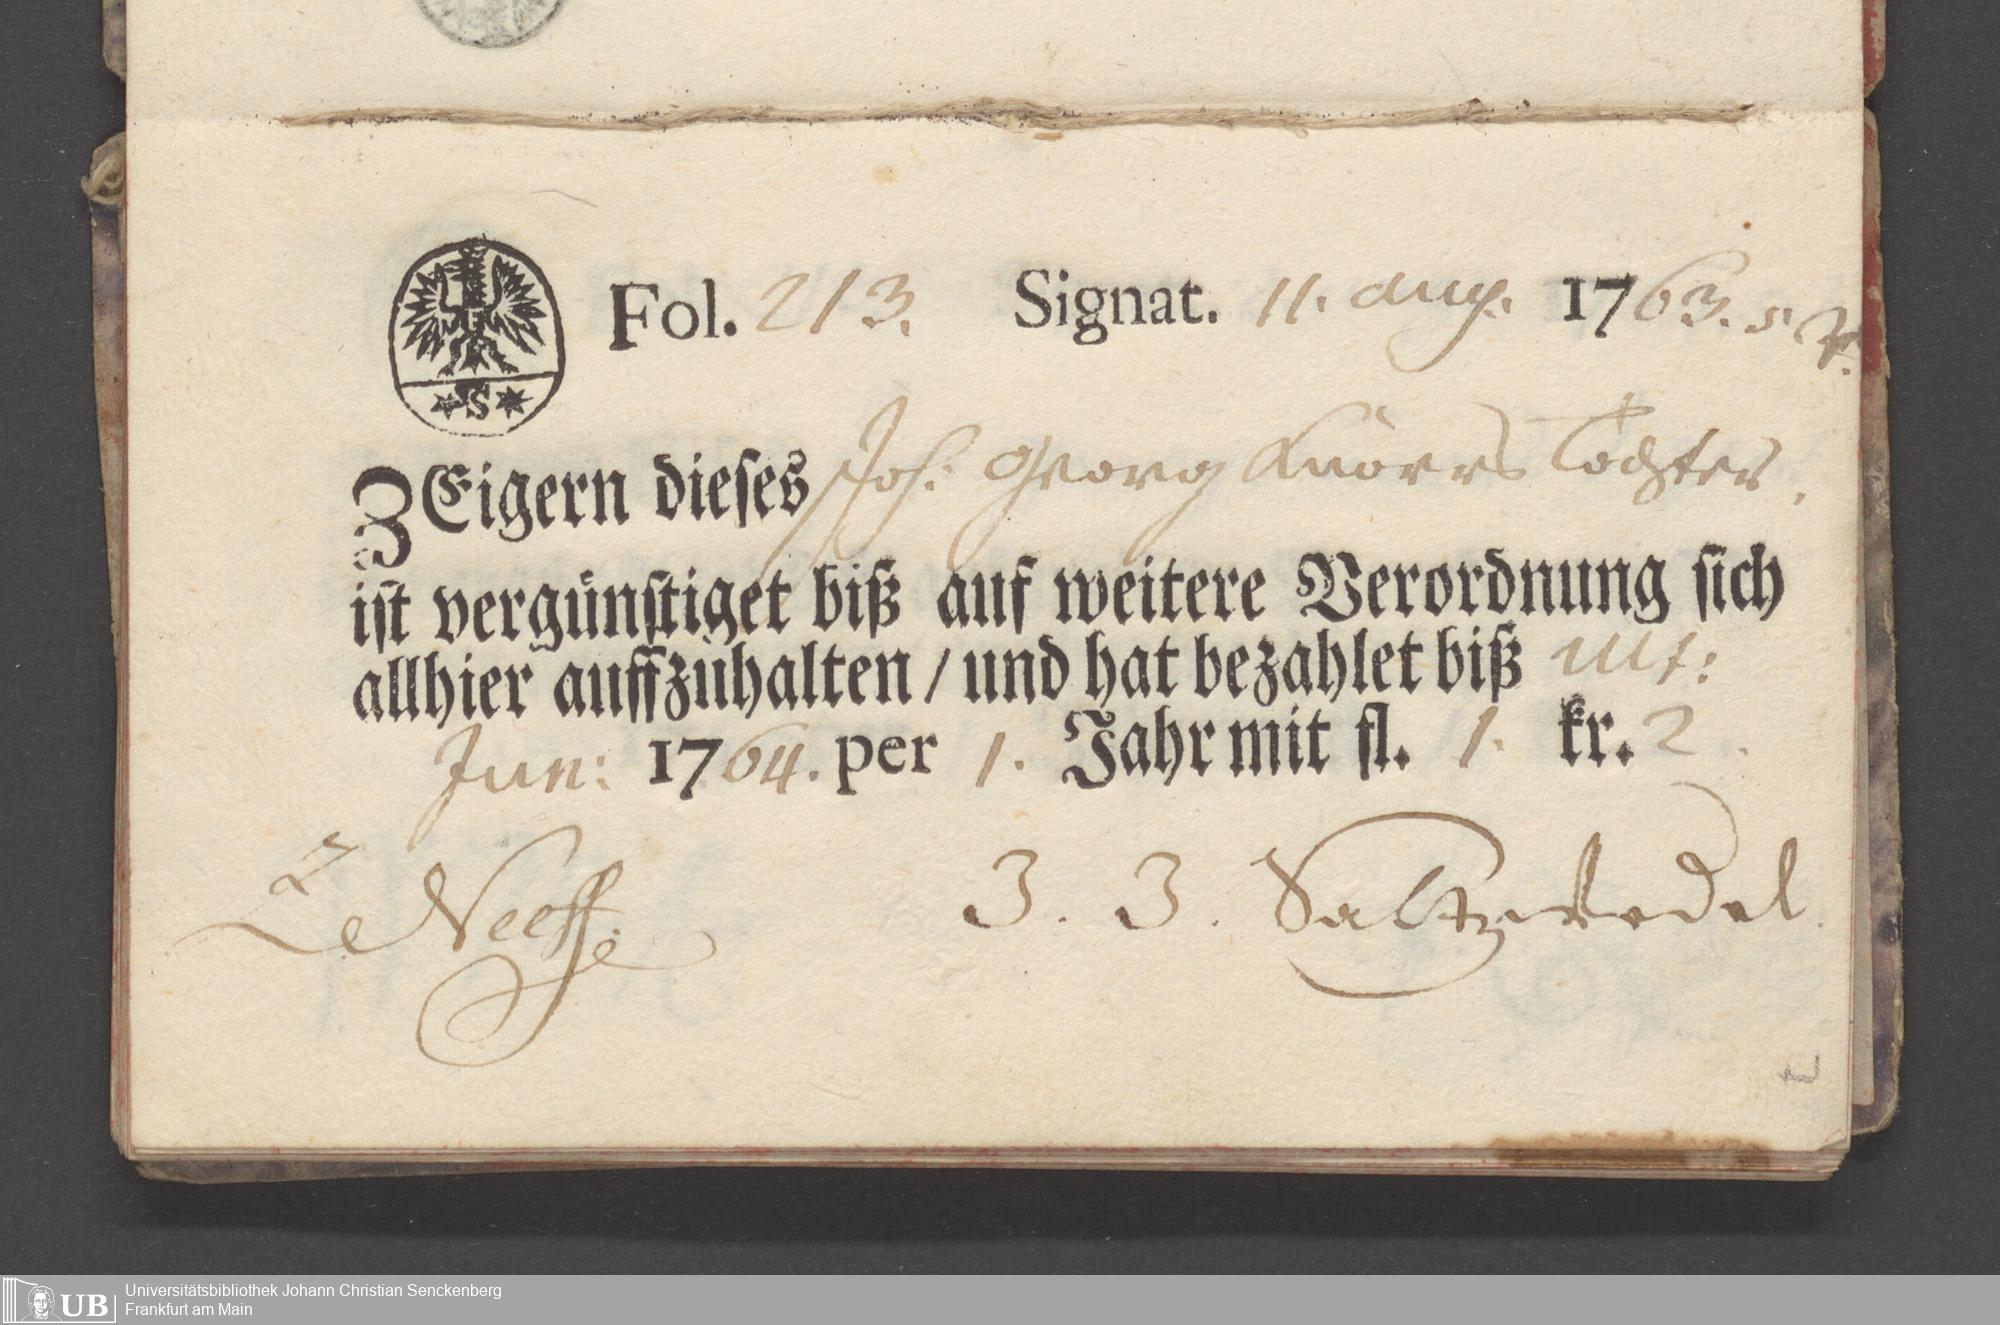 Fol. 213. Signat. 11. aug. 1763.
S
ZEigern dieses Joh. Georg Knörrs Tochter,
ist vergünstiget biß auf weitere Verordnung sich
allhier auffzuhalten / und hat bezahlet biß ult:
Jun: 1764. per 1. Jahr mit fl. 1. kr. 2.
Neeff. J. J. Saltzwedel.
Universitätsbibliothek Johann Christian Senckenberg
Frankfurt am Main
UB